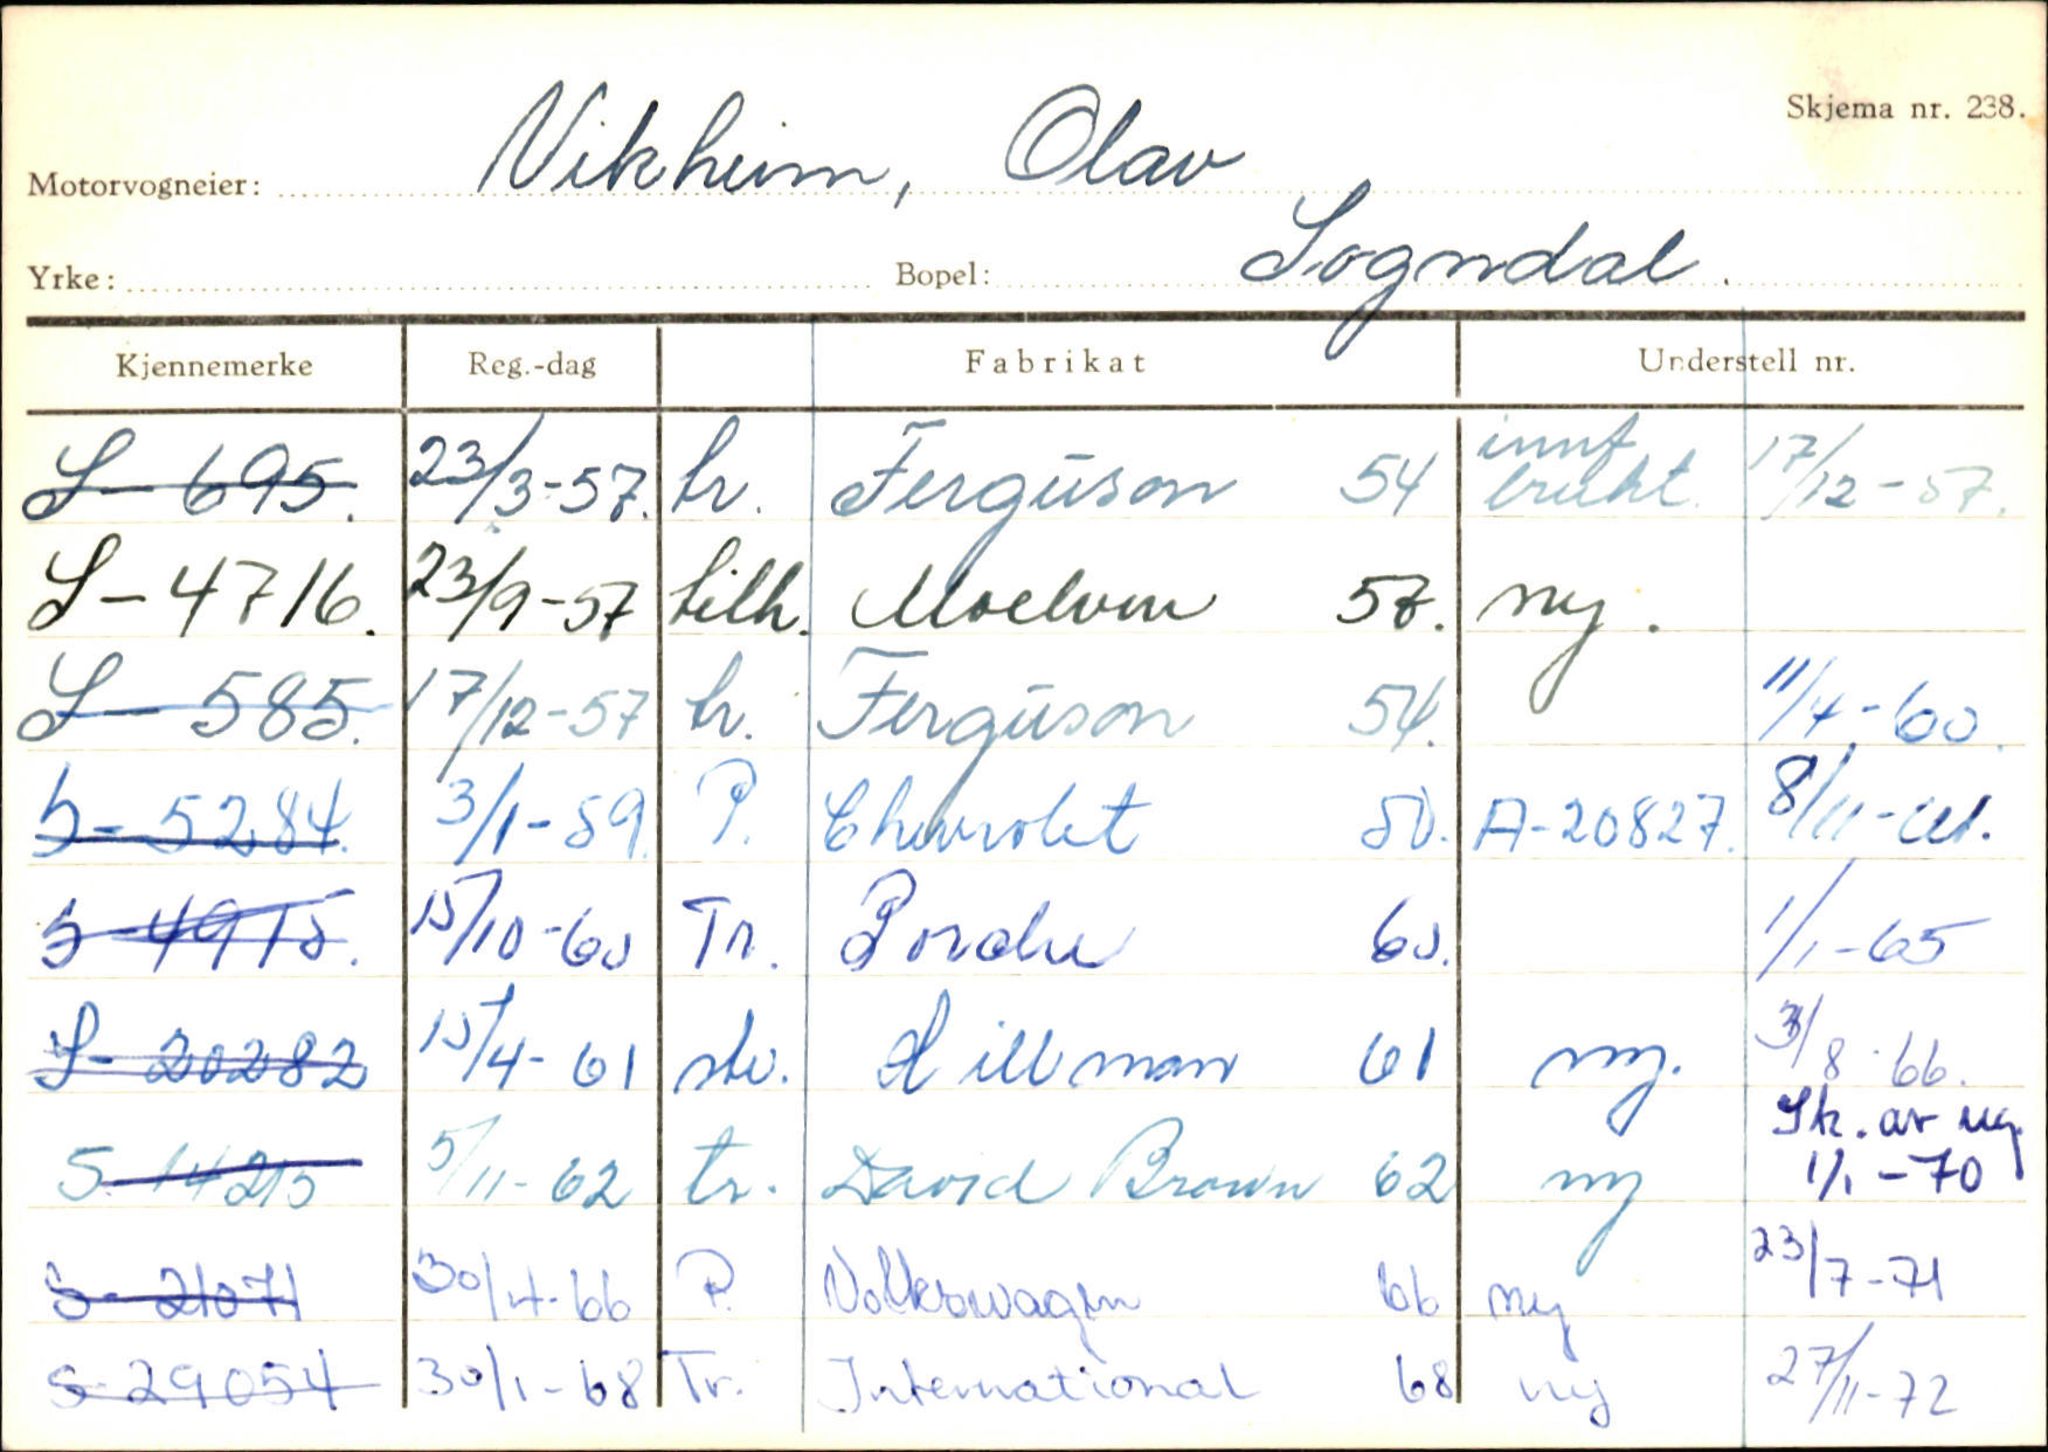 Skjema nr. 238.
Motorvogneier: Vikheim, Olav
Yrke: Bopel: Sogndal.
Kjennemerke Reg.-dag Fabrikat Understell nr.
S-695. 23/3-57. tr. Ferguson 54 innf brukt. 17/12-57.
S-4716. 23/9-57 tilh. Moelven 57. ny.
S-585. 17/12-57 tr. Ferguson 54. 11/4-60.
S-5284. 3/1-59. P. Chevrolet 50. A-20827. 8/11-61.
S-4915. 15/10-60 Tr. 60. 1/1-65
S-20282 15/4-61 stv. Hillman 61 ny. 3/8-66.
S-14215 5/11-62 tr. David Brown 62 ny Sk. av reg. 1/1-70
S-21071 30/4-66 P. Volkswagen 66 ny 23/7-71
S-29054 30/1-68 Tr. International 68 ny 27/11-72